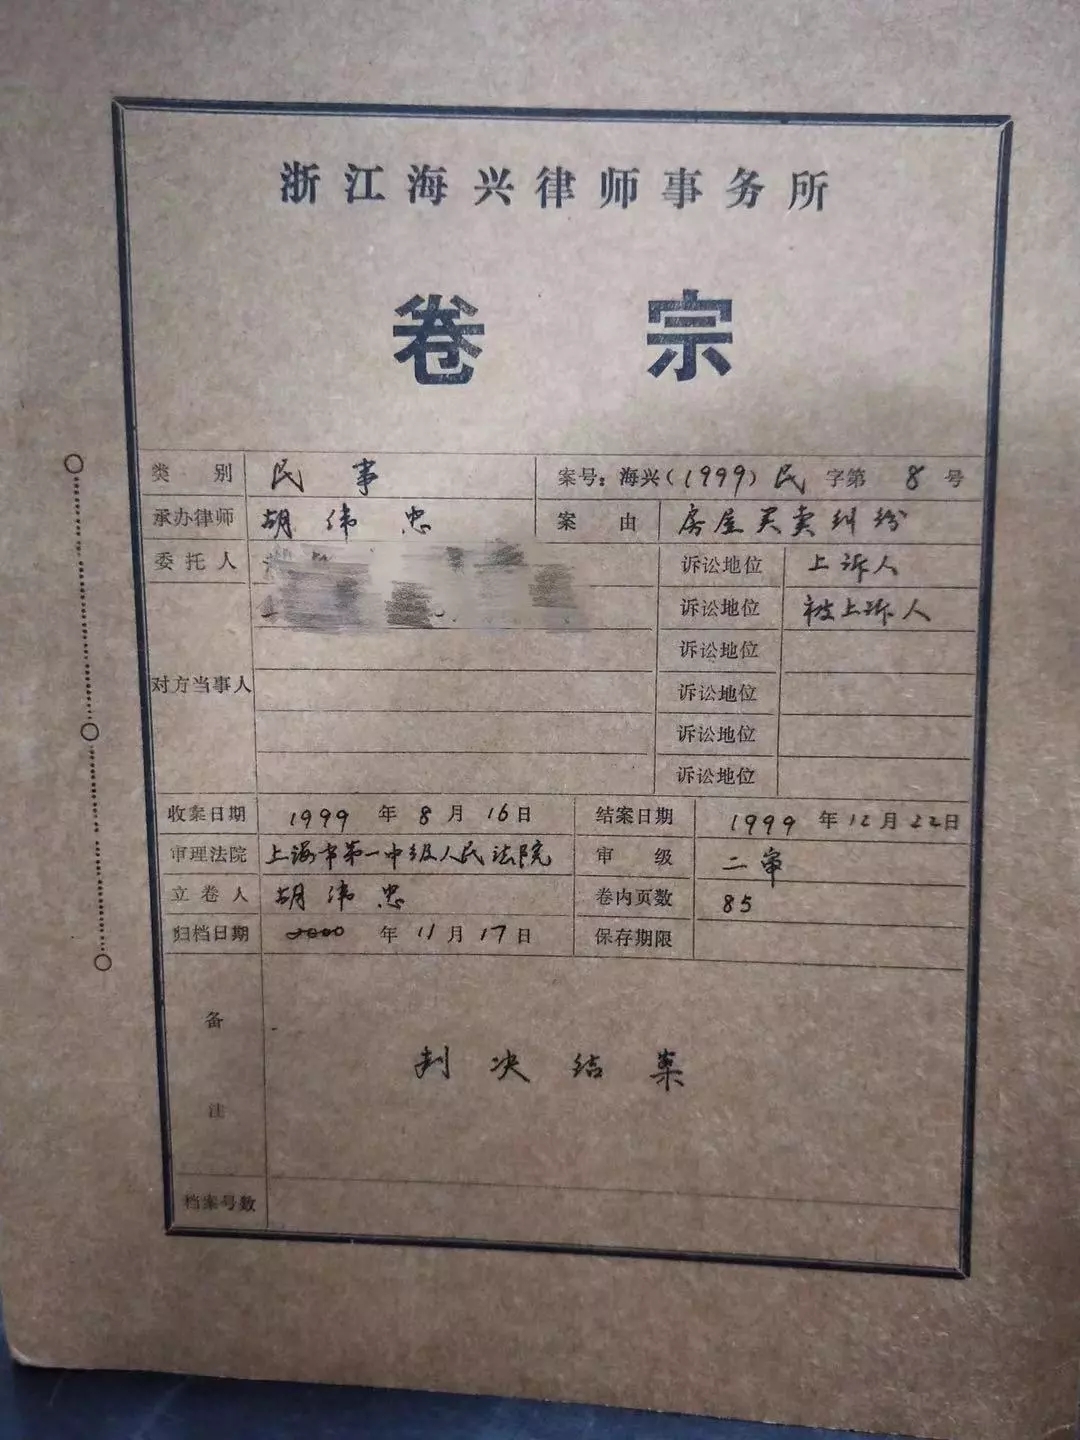 浙江海兴律师事务所
卷宗
类别 民事 案号：海兴（1999）民 字第 8 号
承办律师 胡伟忠 案由 房屋买卖纠纷
委托人 诉讼地位 上诉人
诉讼地位 被上诉人
诉讼地位
对方当事人 诉讼地位
诉讼地位
诉讼地位
收案日期 1999 年 8 月 16 日 结案日期 1999 年 12 月 22 日
审理法院 上海市第一中级人民法院 审级 二审
立卷人 胡伟忠 卷内页数 85
归档日期 2000 年 11 月 17 日 保存期限
备注 判决结案
档案号数